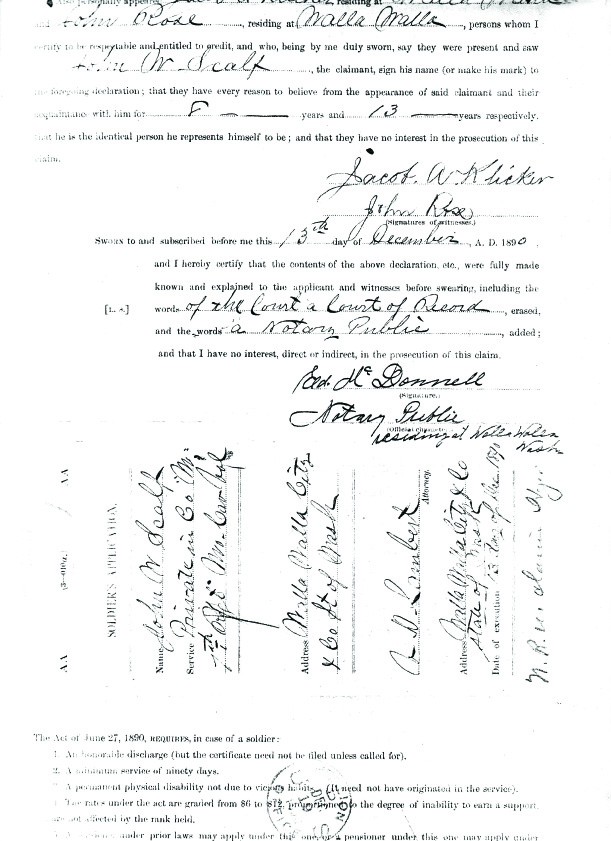 Also personally appeared residing at
and John Rose, residing at Walla Walla, persons whom I
certify to be respectable and entitled to credit, and who, being by me duly sworn, say they were present and saw
John W Scalf, the claimant, sign his name (or make his mark) to
the foregoing declaration; that they have every reason to believe from the appearance of said claimant and their
acquaintance with him for 8 years and 13 years respectively,
that he is the identical person he represents himself to be; and that they have no interest in the prosecution of this
claim.
Jacob. A. Klicker
John Rose
(Signatures of witnesses.)
Sworn to and subscribed before me this 13th day of December, A. D. 1890,
and I hereby certify that the contents of the above declaration, etc., were fully made
known and explained to the applicant and witnesses before swearing, including the
[L. S.] words of the Court a Court of Record, erased,
and the words a Notary Public, added;
and that I have no interest, direct or indirect, in the prosecution of this claim.
Ed. Mc Donnell
(Signature.)
Notary Public
(Official character.)
residing at Walla Walla
Wash
SOLDIER'S APPLICATION.
Name John W Scalf
Service Private in Co "M"
7th Regt Mo. Cav Vol
Address Walla Walla City
& Co St of Wash
Lambert
Attorney.
Address Walla Walla City & Co
State of Wash
Date of execution 13 day of Dec 1890
The Act of June 27, 1890, REQUIRES, in case of a soldier:
1. An honorable discharge (but the certificate need not be filed unless called for).
2. A minimum service of ninety days.
3. A permanent physical disability not due to vicious habits. (It need not have originated in the service).
4. The rates under the act are graded from $6 to $12, proportioned to the degree of inability to earn a support,
are not affected by the rank held.
5. A pensioner under prior laws may apply under this one, or a pensioner under this one may apply under